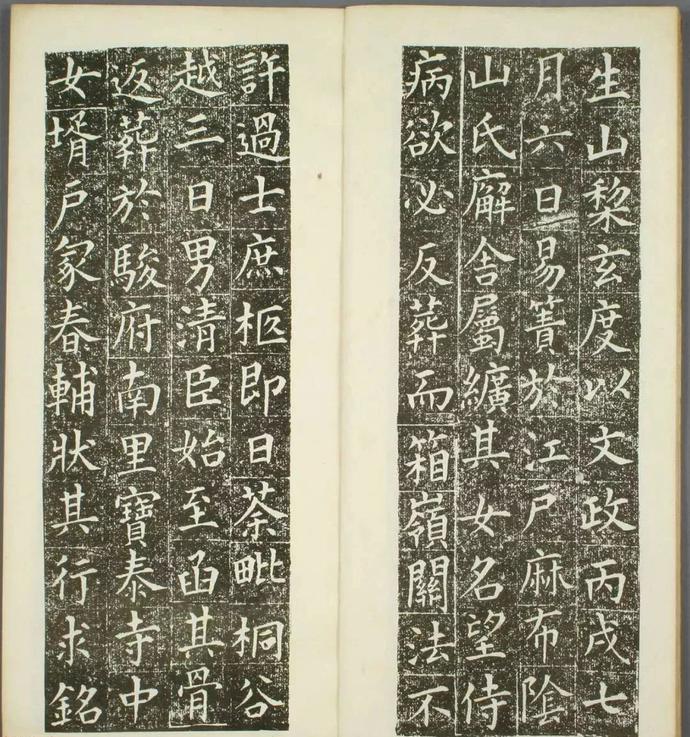 生山棃玄度以文政丙戌七
月六日易簀於江戶麻布陰
山氏廨舍屬纊其女名望侍
病欲必反葬而箱嶺關法不
許過士庶柩即日荼毗桐谷
越三日男清臣始至函其骨
返葬於駿府南里寶泰寺中
女壻戶冢春輔狀其行求銘